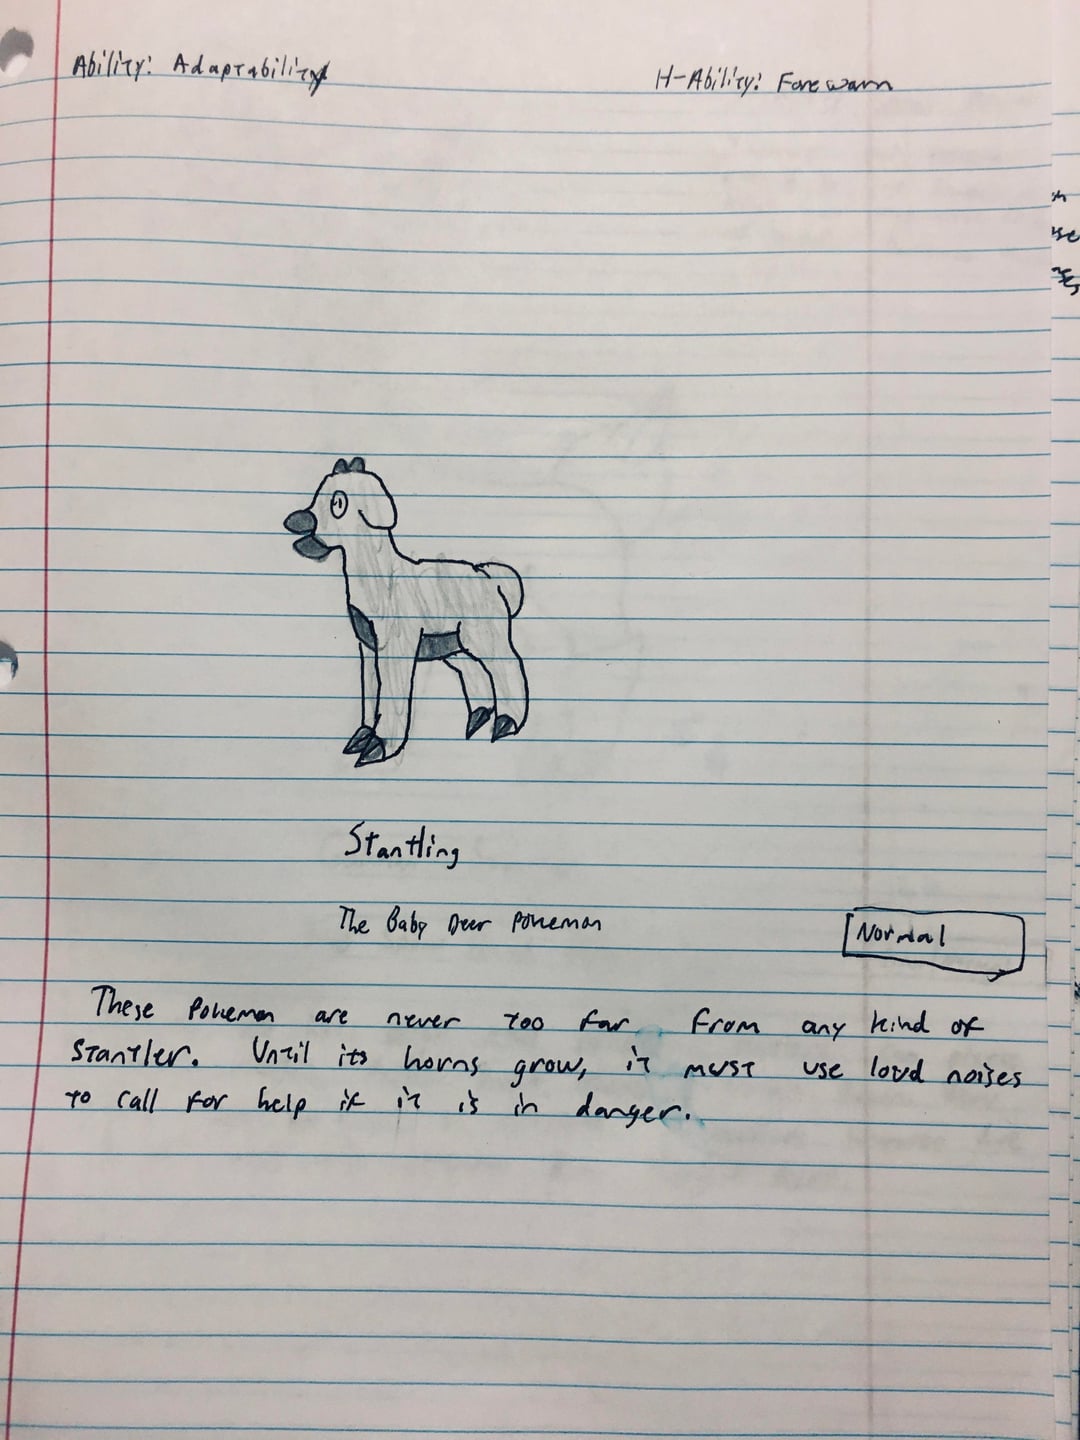 Ability: Adaptability
H-Ability: Forewarn
Stantling
The Baby Deer Pokemon
Normal
These Pokemon are never too far from any kind of
Stantler. Until its horns grow, it must use loud noises
to call for help if it is in danger.